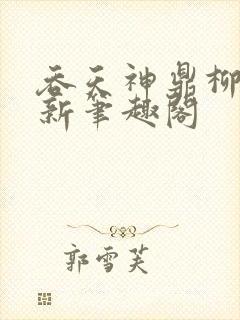 吞天神鼎柳
新笔趣阁
郭雪芙